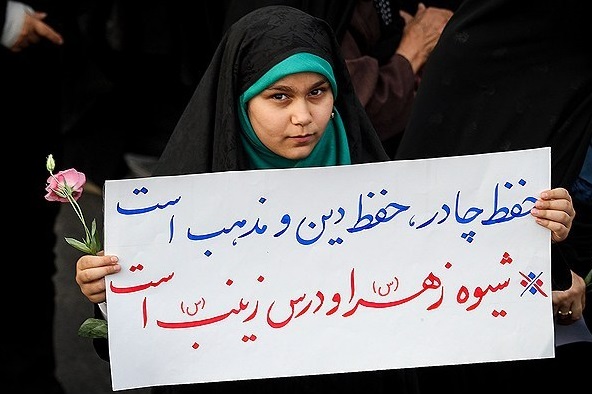 حفظ چادر، حفظ دین و مذهب است
شیوه زهرا (س) و درس زینب (س) است